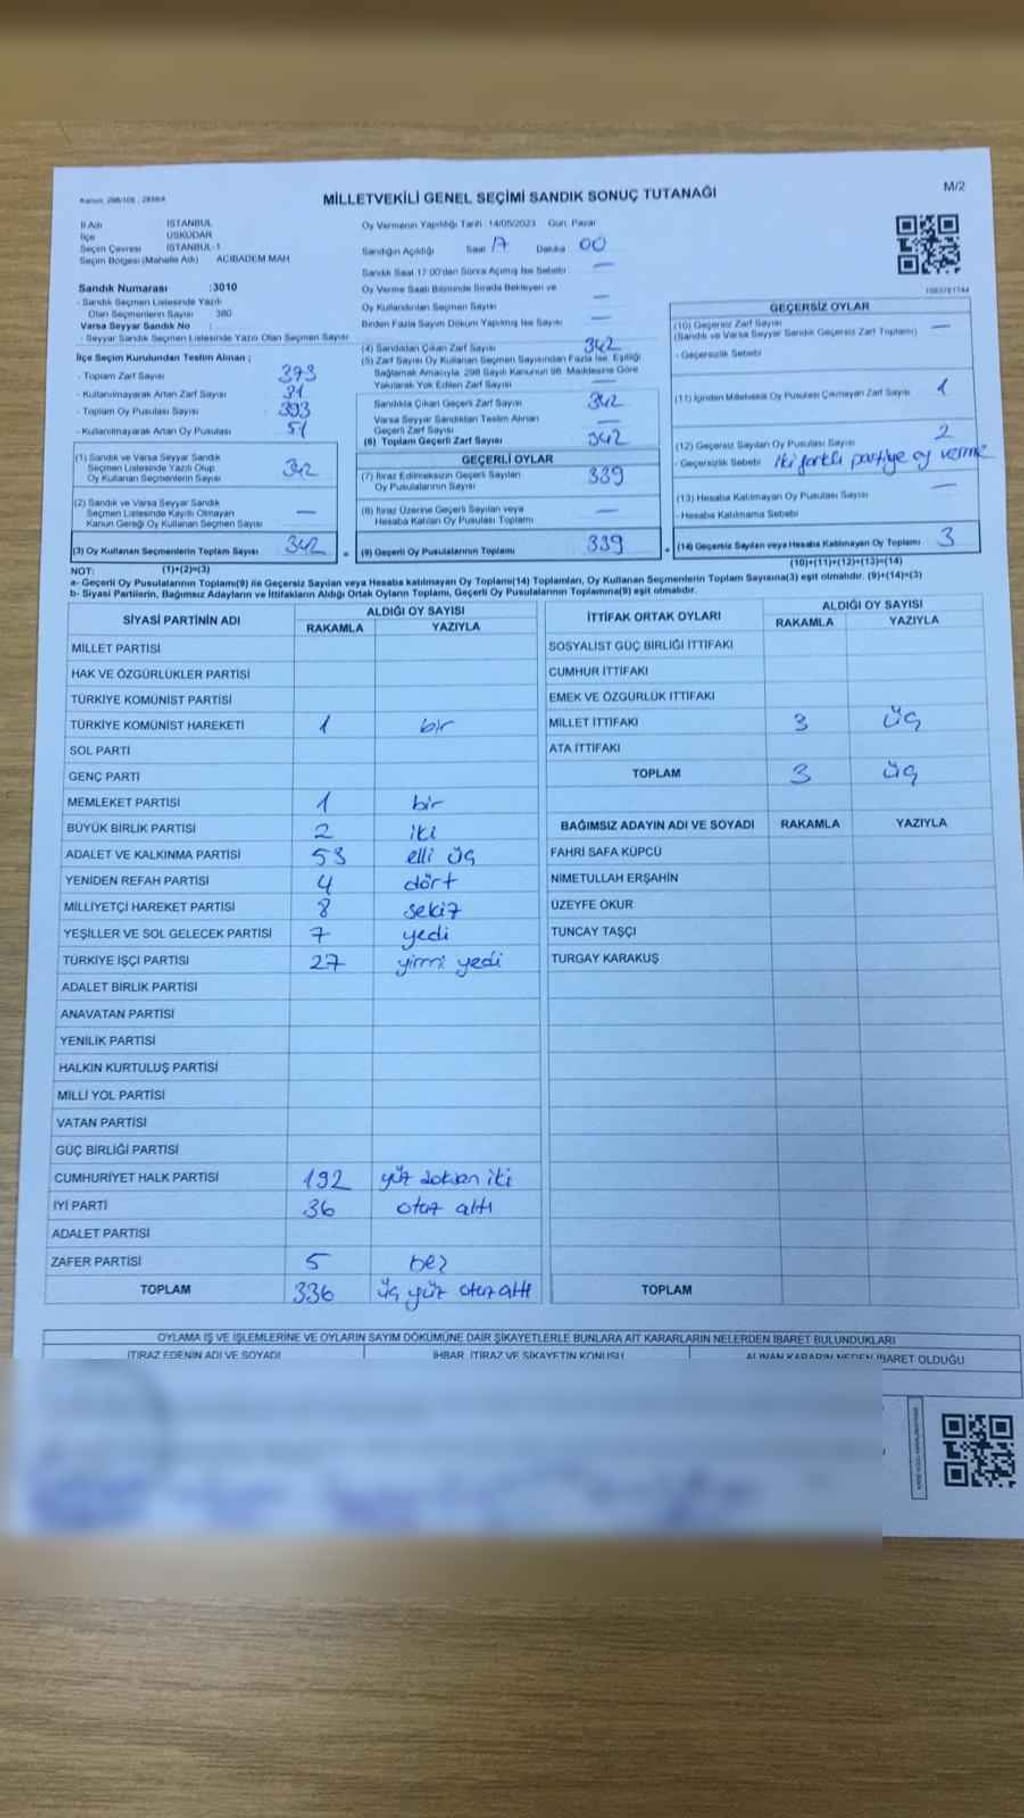 MİLLETVEKİLİ GENEL SEÇİMİ SANDIK SONUÇ TUTANAĞI
M/2
İl Adı İSTANBUL
İlçe ÜSKÜDAR
Seçim Çevresi İSTANBUL-1
Seçim Bölgesi (Mahalle Adı) ACIBADEM MAH
Sandık Numarası :3010
- Sandık Seçmen Listesinde Yazılı
Olan Seçmenlerin Sayısı 380
Varsa Seyyar Sandık No
- Seyyar Sandık Seçmen Listesinde Yazılı Olan Seçmen Sayısı
İlçe Seçim Kurulundan Teslim Alınan ;
- Toplam Zarf Sayısı 373
- Kullanılmayarak Artan Zarf Sayısı 31
- Toplam Oy Pusulası Sayısı 393
- Kullanılmayarak Artan Oy Pusulası 51
(1) Sandık ve Varsa Seyyar Sandık
Seçmen Listesinde Yazılı Olup
Oy Kullanan Seçmenlerin Sayısı 342
(2) Sandık ve Varsa Seyyar Sandık
Seçmen Listesinde Kayıtlı Olmayan
Kanun Gereği Oy Kullanan Seçmen Sayısı —
(3) Oy Kullanan Seçmenlerin Toplam Sayısı 342
Oy Vermenin Yapıldığı Tarih : 14/05/2023 Gün: Pazar
Sandığın Açıldığı Saat 17 Dakika 00
Sandık Saat 17:00'dan Sonra Açılmış İse Sebebi —
Oy Verme Saati Bitiminde Sırada Bekleyen ve
Oy Kullandırılan Seçmen Sayısı —
Birden Fazla Sayım Döküm Yapılmış İse Sayısı —
(4) Sandıktan Çıkan Zarf Sayısı 342
(5) Zarf Sayısı Oy Kullanan Seçmen Sayısından Fazla İse, Eşitliği
Sağlamak Amacıyla 298 Sayılı Kanunun 98. Maddesine Göre
Yakılarak Yok Edilen Zarf Sayısı —
Sandıkta Çıkan Geçerli Zarf Sayısı 342
Varsa Seyyar Sandıktan Teslim Alınan
Geçerli Zarf Sayısı —
(6) Toplam Geçerli Zarf Sayısı 342
GEÇERLİ OYLAR
(7) İtiraz Edilmeksizin Geçerli Sayılan
Oy Pusulalarının Sayısı 339
(8) İtiraz Üzerine Geçerli Sayılan veya
Hesaba Katılan Oy Pusulası Toplamı —
= (9) Geçerli Oy Pusulalarının Toplamı 339
GEÇERSİZ OYLAR
(10) Geçersiz Zarf Sayısı —
(Sandık ve Varsa Seyyar Sandık Geçersiz Zarf Toplamı)
- Geçersizlik Sebebi
(11) İçinden Milletvekili Oy Pusulası Çıkmayan Zarf Sayısı 1
(12) Geçersiz Sayılan Oy Pusulası Sayısı 2
- Geçersizlik Sebebi İki farklı partiye oy verme
(13) Hesaba Katılmayan Oy Pusulası Sayısı —
- Hesaba Katılmama Sebebi
+ (14) Geçersiz Sayılan veya Hesaba Katılmayan Oy Toplamı 3
NOT: (1)+(2)=(3) (10)+(11)+(12)+(13)=(14)
a- Geçerli Oy Pusulalarının Toplamı(9) ile Geçersiz Sayılan veya Hesaba katılmayan Oy Toplamı(14) Toplamları, Oy Kullanan Seçmenlerin Toplam Sayısına(3) eşit olmalıdır. (9)+(14)=(3)
b- Siyasi Partilerin, Bağımsız Adayların ve İttifakların Aldığı Ortak Oyların Toplamı, Geçerli Oy Pusulalarının Toplamına(9) eşit olmalıdır.
SİYASİ PARTİNİN ADI ALDIĞI OY SAYISI
RAKAMLA YAZIYLA
MİLLET PARTİSİ
HAK VE ÖZGÜRLÜKLER PARTİSİ
TÜRKİYE KOMÜNİST PARTİSİ
TÜRKİYE KOMÜNİST HAREKETİ 1 bir
SOL PARTİ
GENÇ PARTİ
MEMLEKET PARTİSİ 1 bir
BÜYÜK BİRLİK PARTİSİ 2 iki
ADALET VE KALKINMA PARTİSİ 53 elli üç
YENİDEN REFAH PARTİSİ 4 dört
MİLLİYETÇİ HAREKET PARTİSİ 8 sekiz
YEŞİLLER VE SOL GELECEK PARTİSİ 7 yedi
TÜRKİYE İŞÇİ PARTİSİ 27 yirmi yedi
ADALET BİRLİK PARTİSİ
ANAVATAN PARTİSİ
YENİLİK PARTİSİ
HALKIN KURTULUŞ PARTİSİ
MİLLİ YOL PARTİSİ
VATAN PARTİSİ
GÜÇ BİRLİĞİ PARTİSİ
CUMHURİYET HALK PARTİSİ 192 yüz doksan iki
İYİ PARTİ 36 otuz altı
ADALET PARTİSİ
ZAFER PARTİSİ 5 beş
TOPLAM 336 üç yüz otuz altı
İTTİFAK ORTAK OYLARI ALDIĞI OY SAYISI
RAKAMLA YAZIYLA
SOSYALİST GÜÇ BİRLİĞİ İTTİFAKI
CUMHUR İTTİFAKI
EMEK VE ÖZGÜRLÜK İTTİFAKI
MİLLET İTTİFAKI 3 üç
ATA İTTİFAKI
TOPLAM 3 üç
BAĞIMSIZ ADAYIN ADI VE SOYADI RAKAMLA YAZIYLA
FAHRİ SAFA KÜPCÜ
NİMETULLAH ERŞAHİN
ÜZEYFE OKUR
TUNCAY TAŞÇI
TURGAY KARAKUŞ
TOPLAM
OYLAMA İŞ VE İŞLEMLERİNE VE OYLARIN SAYIM DÖKÜMÜNE DAİR ŞİKAYETLERLE BUNLARA AİT KARARLARIN NELERDEN İBARET BULUNDUKLARI
İTİRAZ EDENİN ADI VE SOYADI İHBAR, İTİRAZ VE ŞİKAYETİN KONUSU ALINAN KARARIN NEDEN İBARET OLDUĞU